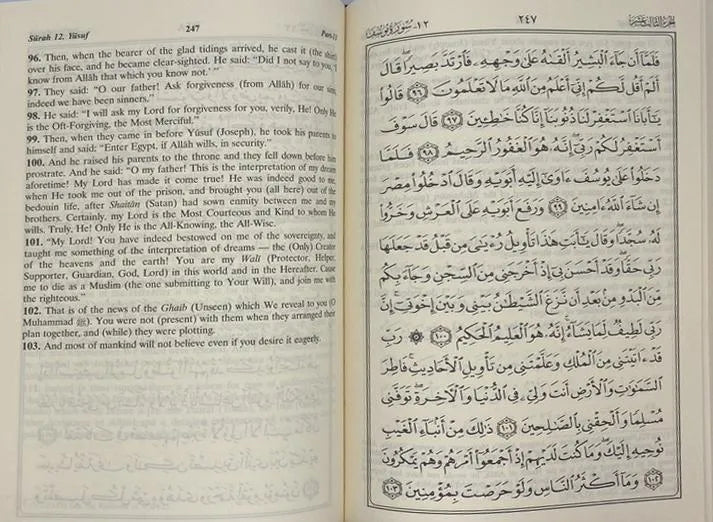 Sûrah 12. Yûsuf 247 Part-13
96. Then, when the bearer of the glad tidings arrived, he cast it (the shirt)
over his face, and he became clear-sighted. He said: "Did I not say to you, 'I
know from Allâh that which you know not.' "
97. They said: "O our father! Ask forgiveness (from Allâh) for our sins,
indeed we have been sinners."
98. He said: "I will ask my Lord for forgiveness for you, verily, He! Only He
is the Oft-Forgiving, the Most Merciful."
99. Then, when they came in before Yûsuf (Joseph), he took his parents to
himself and said: "Enter Egypt, if Allâh wills, in security."
100. And he raised his parents to the throne and they fell down before him
prostrate. And he said: "O my father! This is the interpretation of my dream
aforetime! My Lord has made it come true! He was indeed good to me,
when He took me out of the prison, and brought you (all here) out of the
bedouin life, after Shaitân (Satan) had sown enmity between me and my
brothers. Certainly, my Lord is the Most Courteous and Kind to whom He
wills. Truly, He! Only He is the All-Knowing, the All-Wise.
101. "My Lord! You have indeed bestowed on me of the sovereignty, and
taught me something of the interpretation of dreams — the (Only) Creator
of the heavens and the earth! You are my Wali (Protector, Helper,
Supporter, Guardian, God, Lord) in this world and in the Hereafter. Cause
me to die as a Muslim (the one submitting to Your Will), and join me with
the righteous."
102. That is of the news of the Ghaib (Unseen) which We reveal to you (O
Muhammad ﷺ). You were not (present) with them when they arranged their
plan together, and (while) they were plotting.
103. And most of mankind will not believe even if you desire it eagerly.
الجزء الثالث عشر ٢٤٧ ١٢- سورة يوسف
فَلَمَّآ أَن جَآءَ ٱلْبَشِيرُ أَلْقَىٰهُ عَلَىٰ وَجْهِهِۦ فَٱرْتَدَّ بَصِيرًا ۖ قَالَ
أَلَمْ أَقُل لَّكُمْ إِنِّىٓ أَعْلَمُ مِنَ ٱللَّهِ مَا لَا تَعْلَمُونَ ﴿٩٦﴾ قَالُوا۟
يَـٰٓأَبَانَا ٱسْتَغْفِرْ لَنَا ذُنُوبَنَآ إِنَّا كُنَّا خَـٰطِـِٔينَ ﴿٩٧﴾ قَالَ سَوْفَ
أَسْتَغْفِرُ لَكُمْ رَبِّىٓ ۖ إِنَّهُۥ هُوَ ٱلْغَفُورُ ٱلرَّحِيمُ ﴿٩٨﴾ فَلَمَّا
دَخَلُوا۟ عَلَىٰ يُوسُفَ ءَاوَىٰٓ إِلَيْهِ أَبَوَيْهِ وَقَالَ ٱدْخُلُوا۟ مِصْرَ
إِن شَآءَ ٱللَّهُ ءَامِنِينَ ﴿٩٩﴾ وَرَفَعَ أَبَوَيْهِ عَلَى ٱلْعَرْشِ وَخَرُّوا۟
لَهُۥ سُجَّدًا ۖ وَقَالَ يَـٰٓأَبَتِ هَـٰذَا تَأْوِيلُ رُءْيَـٰىَ مِن قَبْلُ قَدْ جَعَلَهَا
رَبِّى حَقًّا ۖ وَقَدْ أَحْسَنَ بِىٓ إِذْ أَخْرَجَنِى مِنَ ٱلسِّجْنِ وَجَآءَ بِكُم
مِّنَ ٱلْبَدْوِ مِنۢ بَعْدِ أَن نَّزَغَ ٱلشَّيْطَـٰنُ بَيْنِى وَبَيْنَ إِخْوَتِىٓ ۚ إِنَّ
رَبِّى لَطِيفٌ لِّمَا يَشَآءُ ۚ إِنَّهُۥ هُوَ ٱلْعَلِيمُ ٱلْحَكِيمُ ﴿١٠٠﴾ ۞ رَبِّ
قَدْ ءَاتَيْتَنِى مِنَ ٱلْمُلْكِ وَعَلَّمْتَنِى مِن تَأْوِيلِ ٱلْأَحَادِيثِ ۚ فَاطِرَ
ٱلسَّمَـٰوَٰتِ وَٱلْأَرْضِ أَنتَ وَلِىِّۦ فِى ٱلدُّنْيَا وَٱلْـَٔاخِرَةِ ۖ تَوَفَّنِى
مُسْلِمًا وَأَلْحِقْنِى بِٱلصَّـٰلِحِينَ ﴿١٠١﴾ ذَٰلِكَ مِنْ أَنۢبَآءِ ٱلْغَيْبِ
نُوحِيهِ إِلَيْكَ ۖ وَمَا كُنتَ لَدَيْهِمْ إِذْ أَجْمَعُوٓا۟ أَمْرَهُمْ وَهُمْ يَمْكُرُونَ
﴿١٠٢﴾ وَمَآ أَكْثَرُ ٱلنَّاسِ وَلَوْ حَرَصْتَ بِمُؤْمِنِينَ ﴿١٠٣﴾